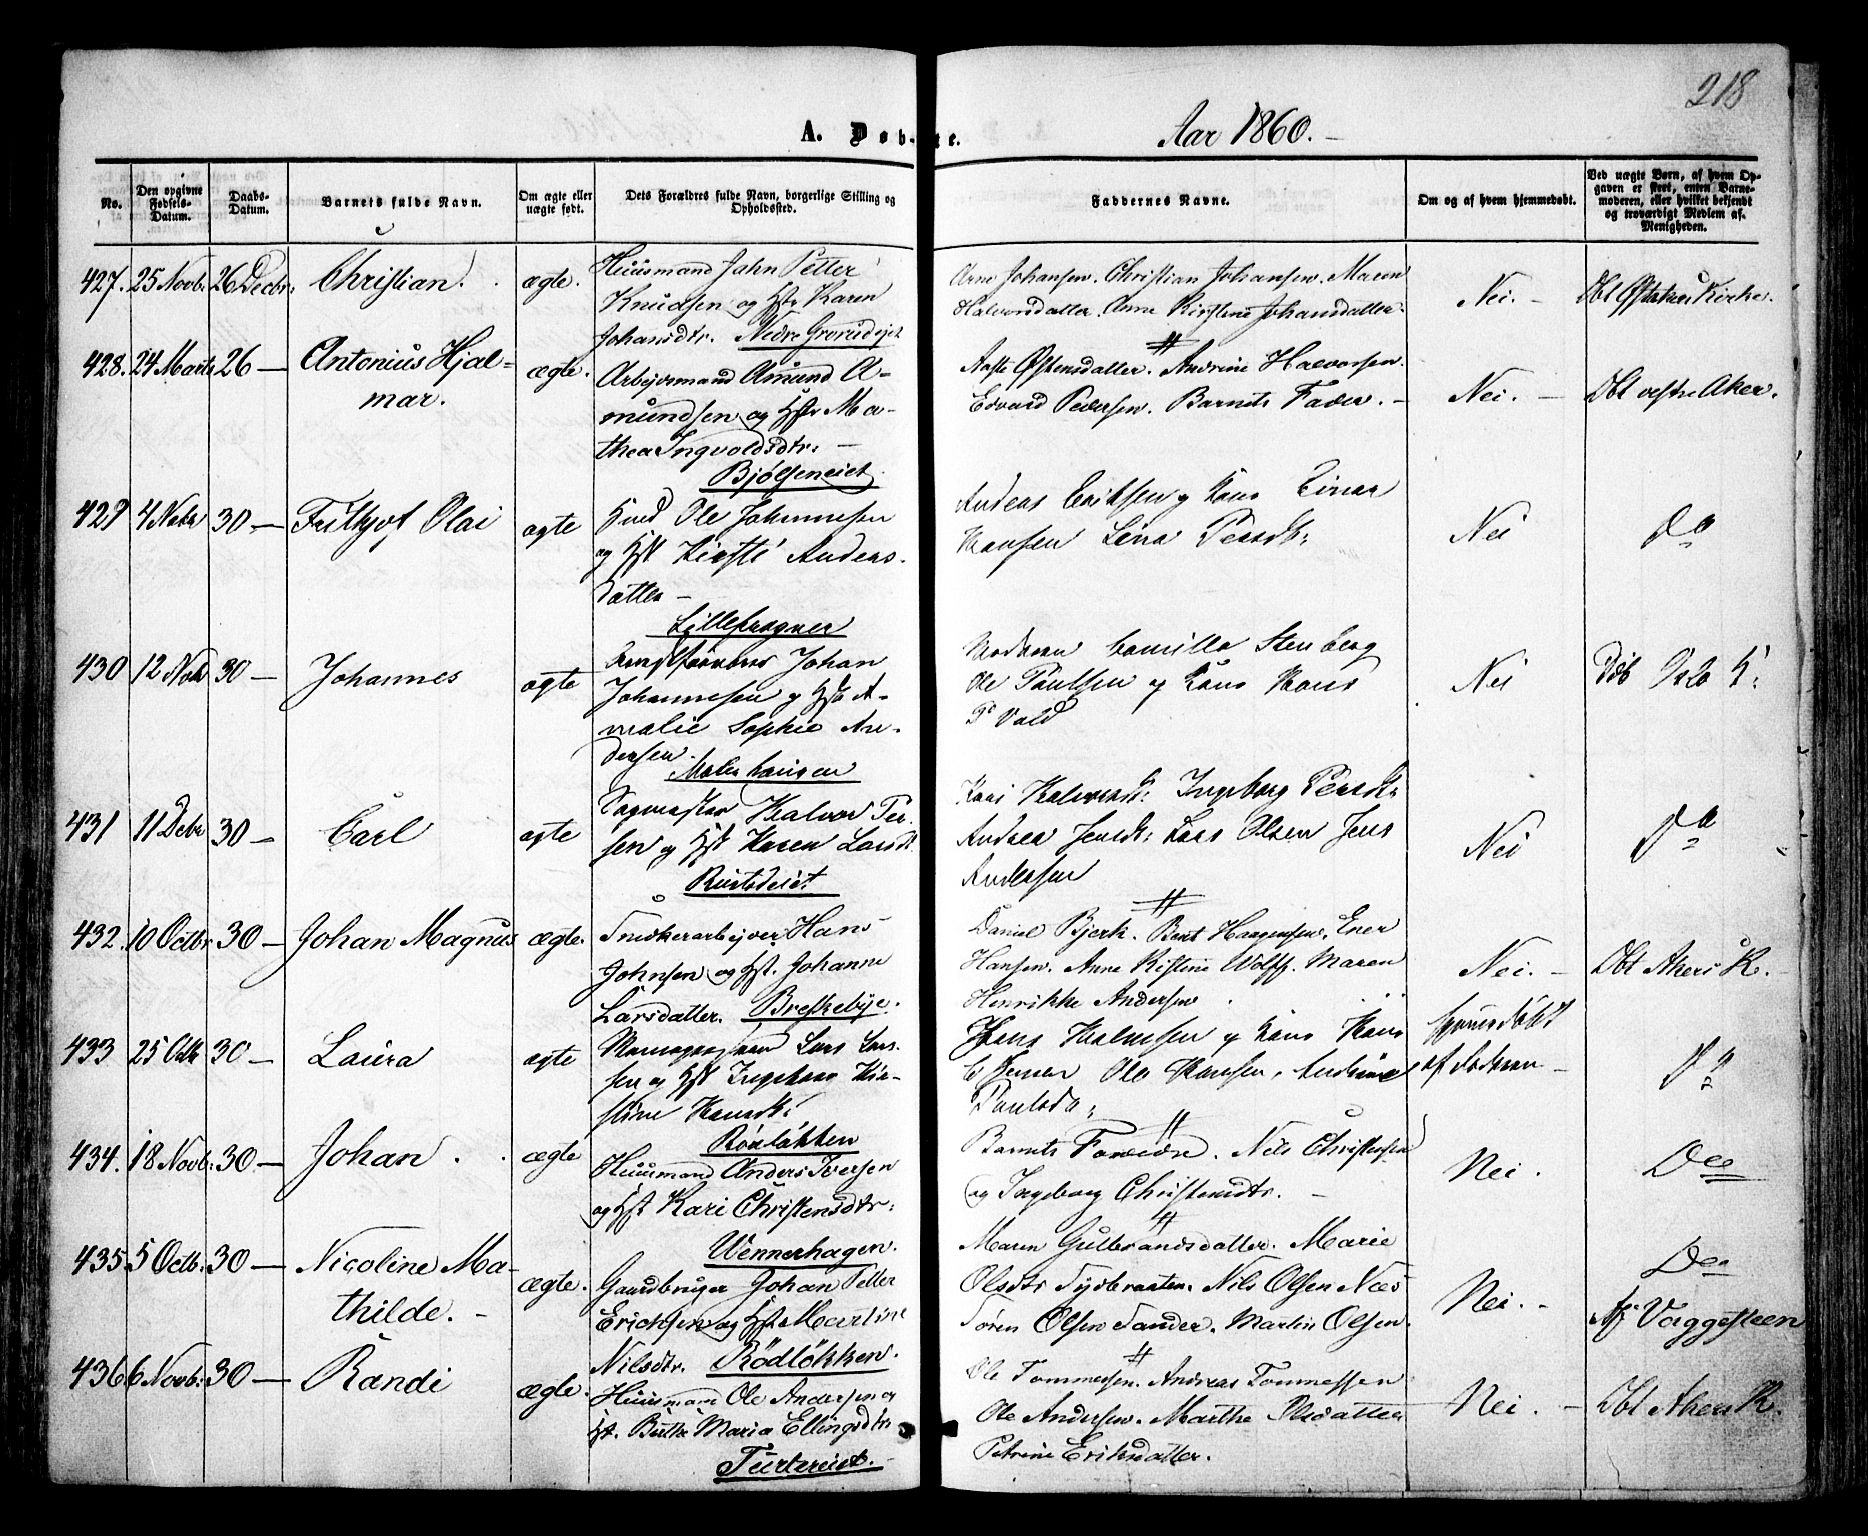 218
A. Døb-te. Aar 1860. -
No.
Den opgivne Fødsels-Datum.
Daabs-Datum.
Barnets fulde Navn.
Om ægte eller uægte født.
Dets Forældres fulde Navn, borgerlige Stilling og Opholdssted.
Faddernes Navne.
Om og af hvem hjemmedøbt.
Ved uægte Børn, af hvem Opgaven er skeet, enten Barnemoderen, eller hvilket bekjendt og troværdigt Medlem af Menigheden.
427. 25 Novb. 26 Decbr. Christian. ægte.
Huusmand Jahn Petter
Knudsen og Hstr Karen
Johansdtr. Nedre Grorudejet
Arne Johansen. Christian Johansen. Maren
Halvorsdatter. Anne Kirstine Johansdatter.
Nei. -
Dbt Østakers Kirke.
428. 24 Marts 26 - Antonius Hjal=
mar. ægte.
Arbejdsmand Amund A-
mundsen og Hstr Ma-
thea Ingvoldsdtr. -
Bjølseneiet.
Aaste Østensdatter. Andrine Halvorsen
Edvard Pedersen. Barnets Fader. -
Nei. -
Dbt vestre Aker.
429 4 Nobr 30 - Frithjof Olai ægte
Ole Johannesen
og Hst Kirsti Anders-
datter -
Lillefrogner
Anders Eriksen og Kone Einar
Hansen Lina Persdtr
Nei
Do
430 12 Nobr 30 - Johannes ægte
Johan
Johannesen og Hst A-
malie Sophie An-
dersen.
Malerhaugen
Camilla Stenberg
Ole Paulsen og Kone Hans
Nei
Dbt Oslo K.
431 11 Debr 30 - Carl ægte
Sagmester Halvor Per-
sen og Hst Karen Larsdt.
Rustadeiet
Kari Halvorsdt: Ingeborg Persdt:
Andrea Jensdt: Lars Olsen Jens
Andersen
Nei
Do
432. 10 Octbr. 30 - Johan Magnus ægte.
Snedkerarbejder Hans
Johnsen og Hst. Johanne
Larsdatter. Breskebye.
Daniel Bjerk. Bent Haagensen. Ener
Hansen. Anne Kistine Wolff. Maren
Henrikke Andersen
Nei. -
Dbt Akers K. -
433 25 Octb 30 - Laura ægte
Lars Lar-
sen og Hst Ingeborg Kir-
stine Hansdt:
Rönløkken
Hans Halvorsen og Kone Hans
Ole Hansen, Andrine
Paulsdtr:
hjemmedøbt
af Jordmor -
Do
434. 18 Novb. 30 - Johan. ægte
Huusmand Anders Iversen
og Hst Kari Christensdtr.
Wennerhagen.
Barnets Forældre. Nils Christensen
og Ingeborg Christensdtr. -
Nei.
Do
435. 5 Octb. 30 - Nicoline Ma-
thilde. - ægte.
Gaardbruger Johan Petter
Erichsen og Hst Martine
Nilsdtr. Rödløkken.
Maren Gulbrandsdatter. Marie
Olsdtr Sydbraaten. Nils Olsen Næs
Sören Olsen Sander. Martin Olsen.
Nei. -
Do
Af Vaggesteen
436 6 Novb. 30 - Randi ægte.
Huusmand Ole Andersen og
Hst. Berthe Maria Ellingsdtr
Turtereiet. -
Ole Tommersen. Andreas Tommessen
Ole Andersen. Marthe Olsdatter
Petrine Eriksdatter.
Nei. -
Dbt Akers K.